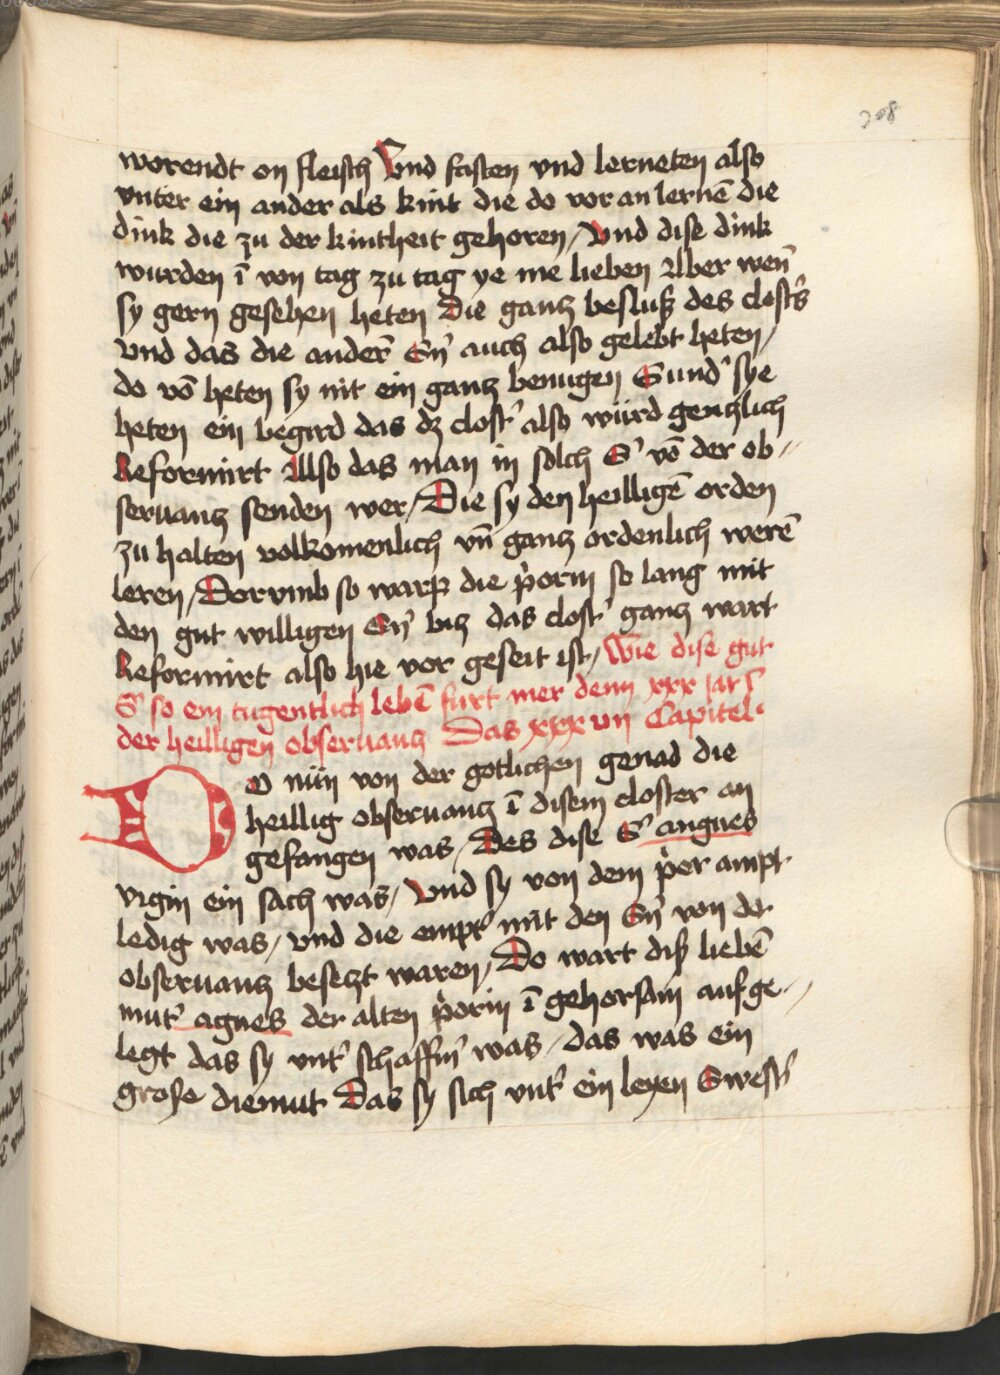 208
worendt on fleisch Vnd fasten vnd lerneten also
vnter ein ander als kint die do vor an lernē die
dink die zu der kintheit gehoren / Vnd dise dink
wurden ī von tag zu tag ye me lieben Aber wen̄
sy gern gesehen heten Die gantz besluß des clost's
vnd das die ander̄ Sn̄ auch also gelebt heten /
do võ heten sy nit ein gantz benugen Sund' sye
heten ein begird das dz clost' also würd gentzlich
Reformirt Also das man in solch S' võ der ob-
seruantz senden wer / Die sy den heilligē orden
zu halten volkomenlich vn̄ gantz ordenlich werē
leren / Dorvmb so warp die p'orin so lang mit
den gut willigen Sn̄ bitz das clost' gantz wart
Reformirt also hie vor geseit ist / Wie dise gut
S' so ein tugentlich lebē furt mer denn xxx jar ī
der heilligen obseruantz Das xxxvii Capitel.
DO nün von der gotlichen genad die
heillig obseruantz ī disem closter an
gefangen was / Des dise S' angnes
virgin ein sach was / Vnd sy von dem p'or ampt
ledig was / vnd die empt' mit den Sn̄ von der
obseruantz besetzt waren / Do wart diß liebē
mut' agnes der alten p'orin ī gehorsam auf ge-
legt das sy vnt' schaffn̄ was / das was ein
grose diemut Das sy sich vnt' ein leyen Swest'